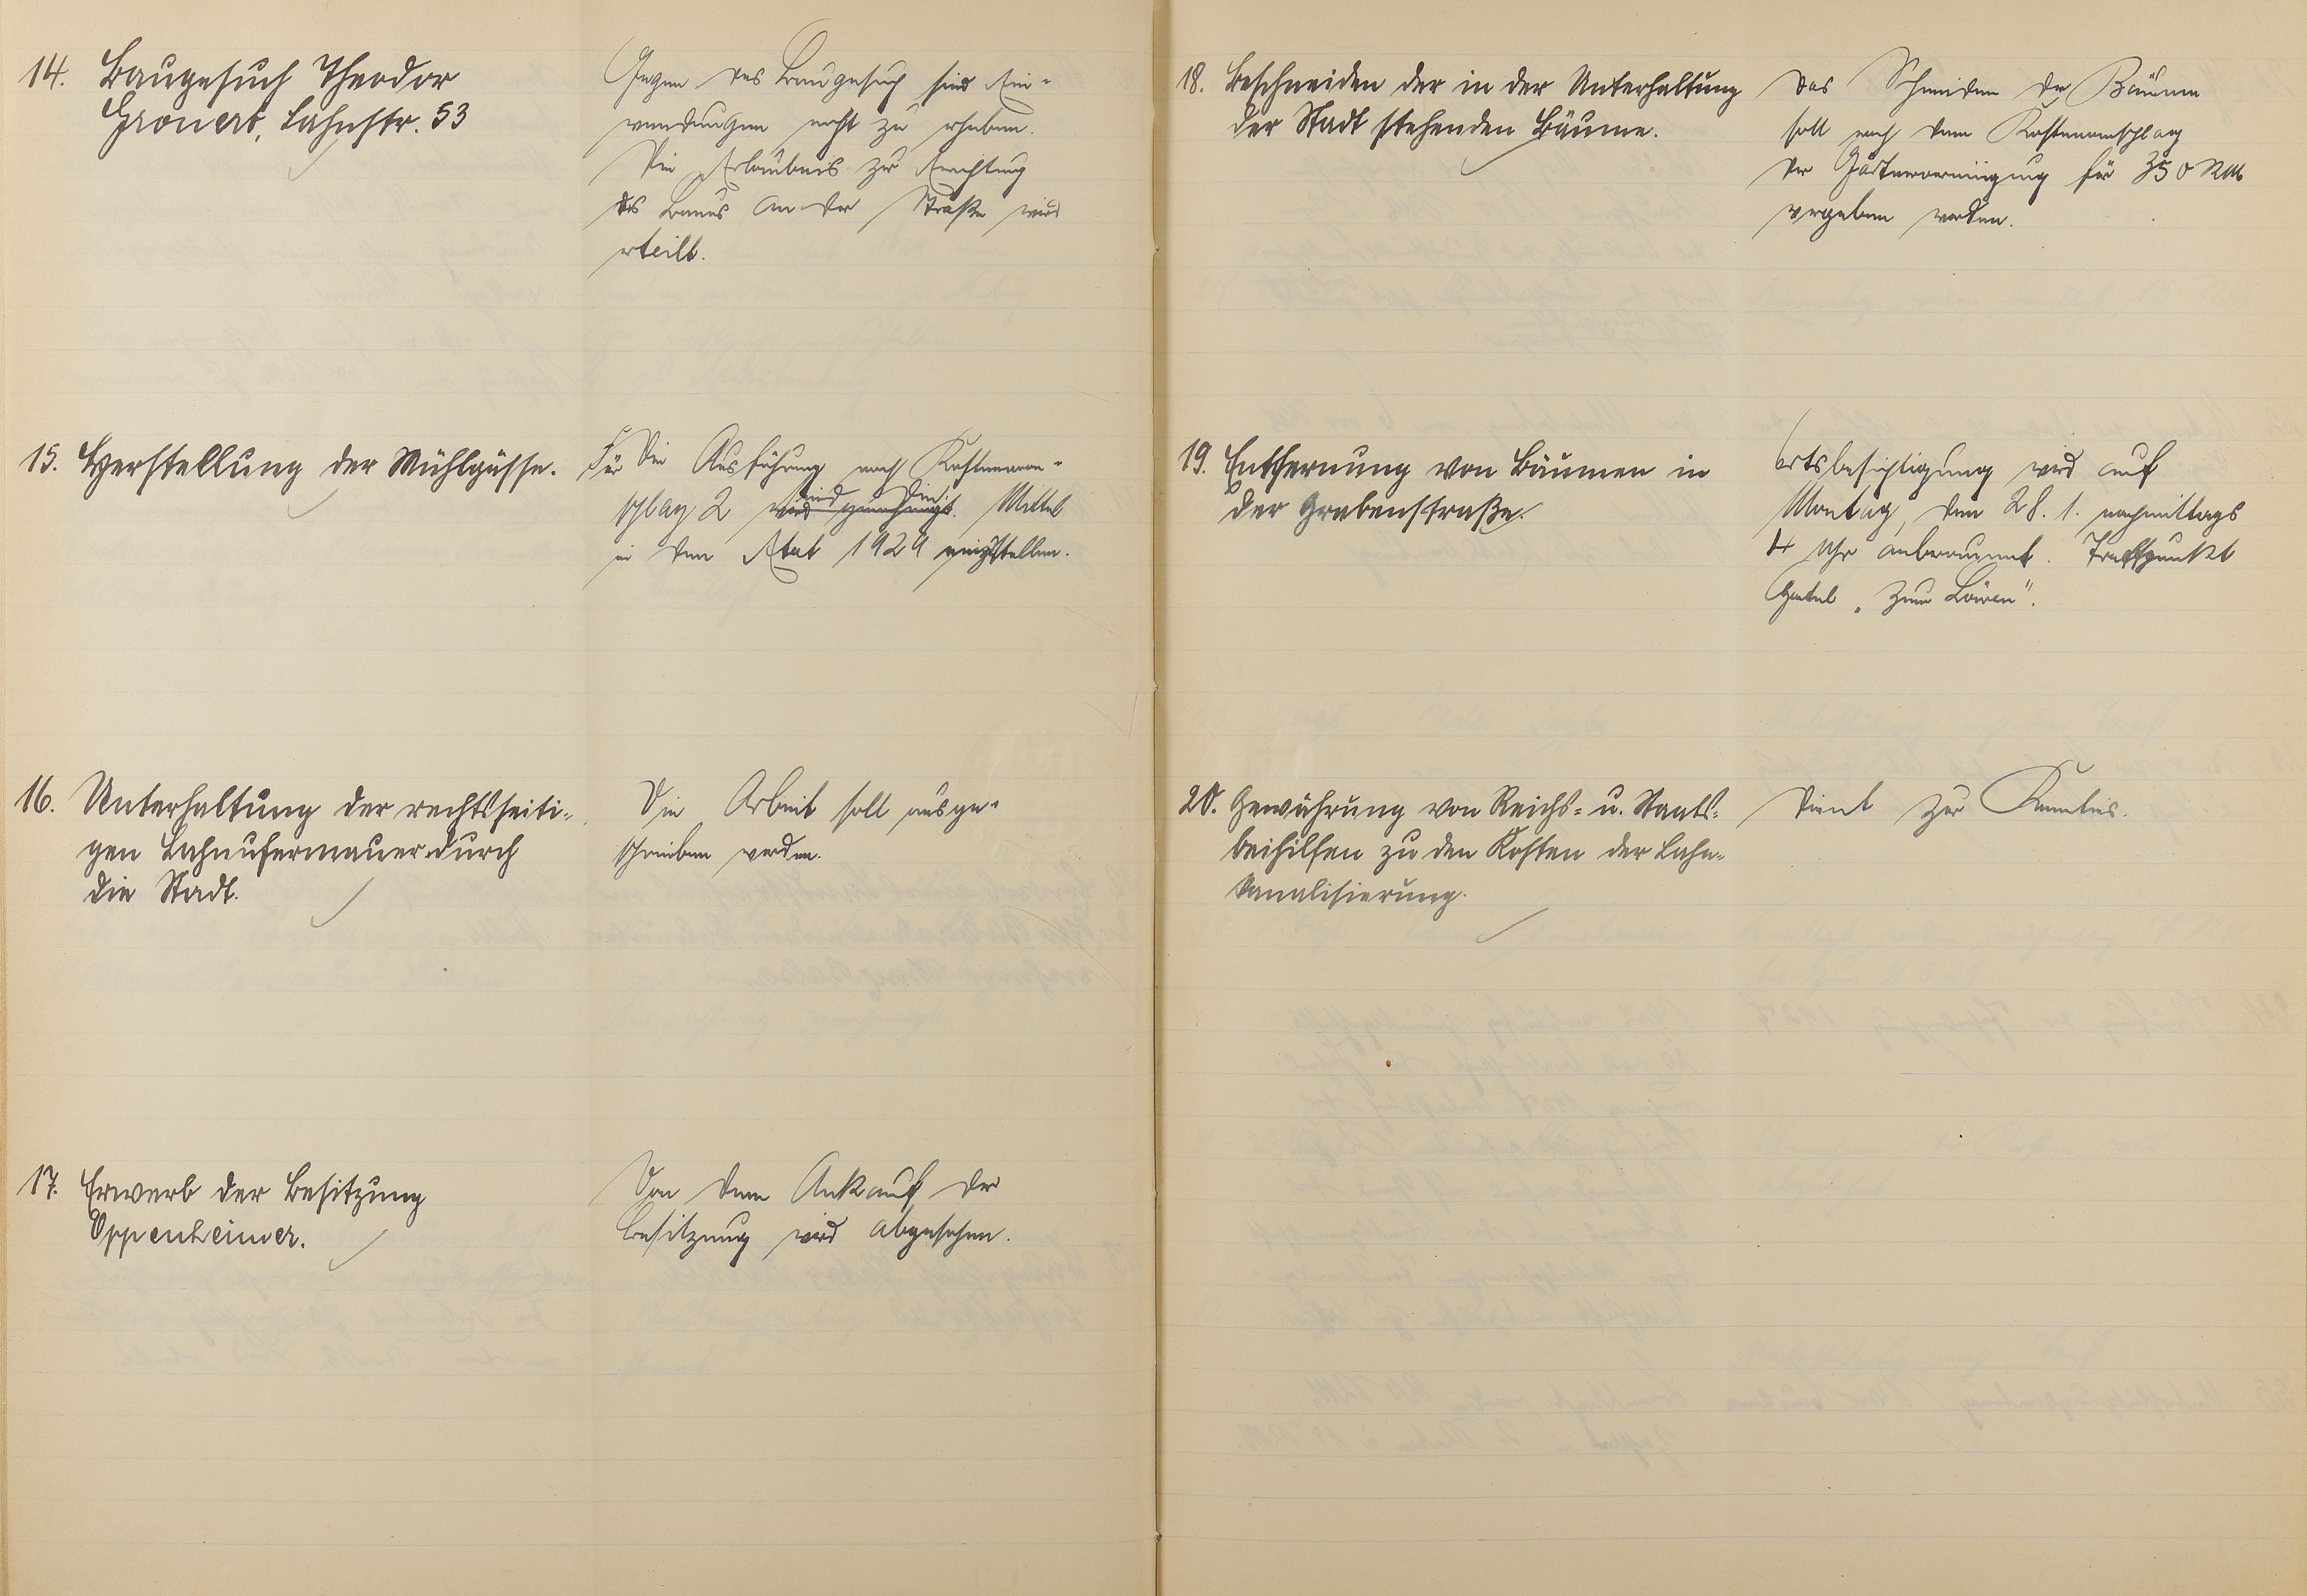 14. Baugesuch Theodor
Gronert, Lahnstr. 53
Gegen das Baugesuch sind Ein-
wendungen nicht zu erheben.
Die Erlaubnis zur Errichtung
des Baues an der Straße wird
erteilt.
15. Herstellung der Mühlgüsse.
Für die Ausführung nach Kostenvoran-
schlag 2 wird genehmigt. sind die Mittel
in den Etat 1929 einzustellen.
16. Unterhaltung der rechtsseiti-
gen Lahnufermauer durch
die Stadt.
Die Arbeit soll ausge-
schrieben werden.
17. Erwerb der Besitzung
Oppenheimer.
Von dem Ankauf der
Besitzung wird abgesehen.
18. Beschneiden der in der Unterhaltung
der Stadt stehenden Bäume.
Das Schneiden der Bäume
soll nach dem Kostenanschlag
der Gärtnervereinigung für 350 RM
vergeben werden.
19. Entfernung von Bäumen in
der Grabenstraße.
Ortsbesichtigung wird auf
Montag, den 28. 1. nachmittags
4 Uhr anberaumt. Treffpunkt
Hotel „Zum Löwen".
20. Gewährung von Reichs- u. Staats-
beihilfen zu den Kosten der Lahn-
kanalisierung.
Dient zur Kenntnis.